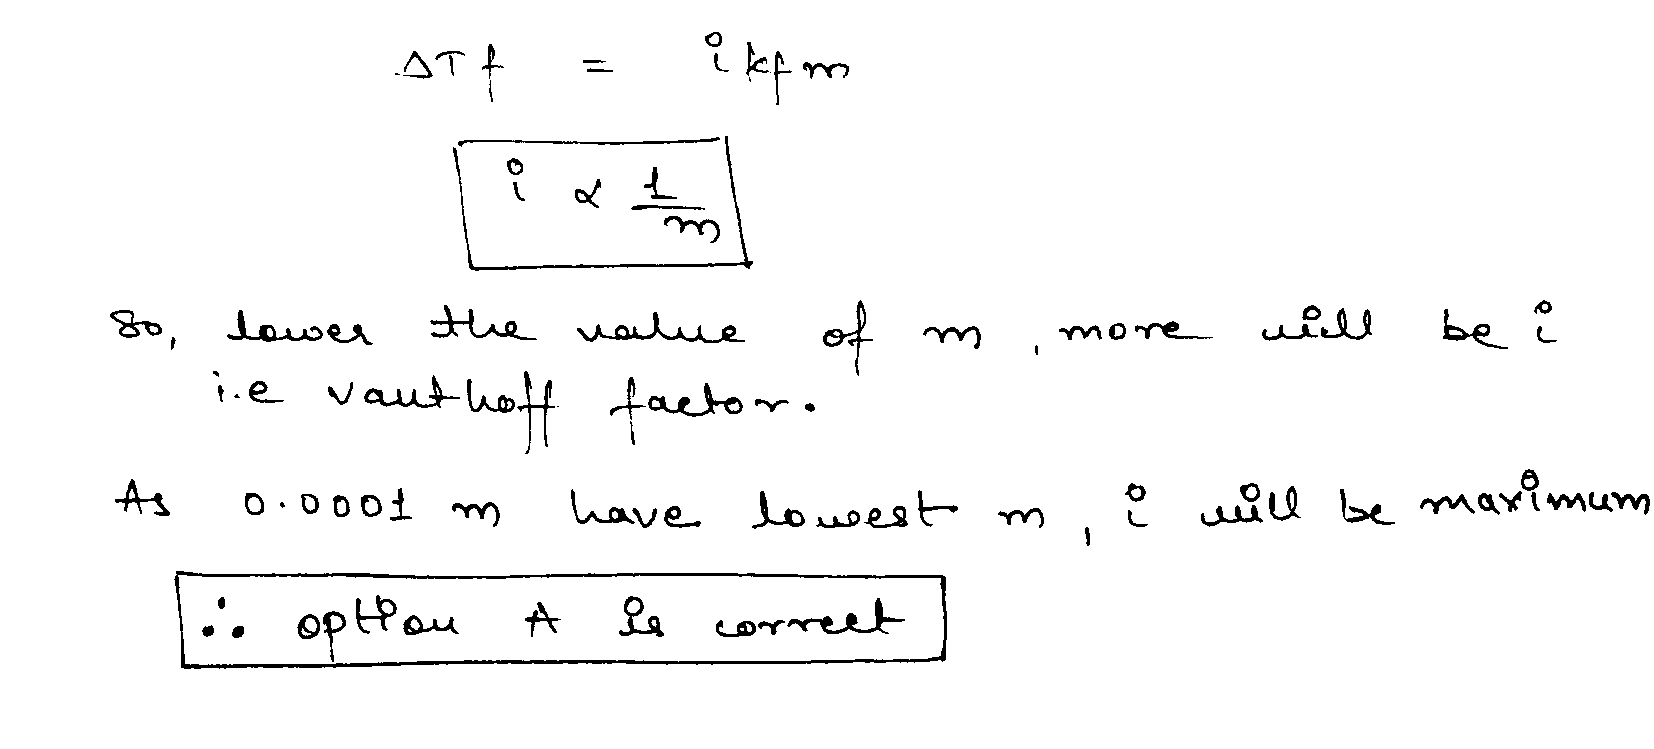 ΔTf = i kf m
i ∝ 1/m
So, lower the value of m, more will be i
i.e vauthoff factor.
As 0.0001 m have lowest m, i will be maximum
∴ option A is correct